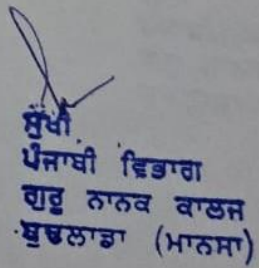 ਮੁੱਖੀ
ਪੰਜਾਬੀ ਵਿਭਾਗ
ਗੁਰੂ ਨਾਨਕ ਕਾਲਜ
ਬੁਢਲਾਡਾ (ਮਾਨਸਾ)